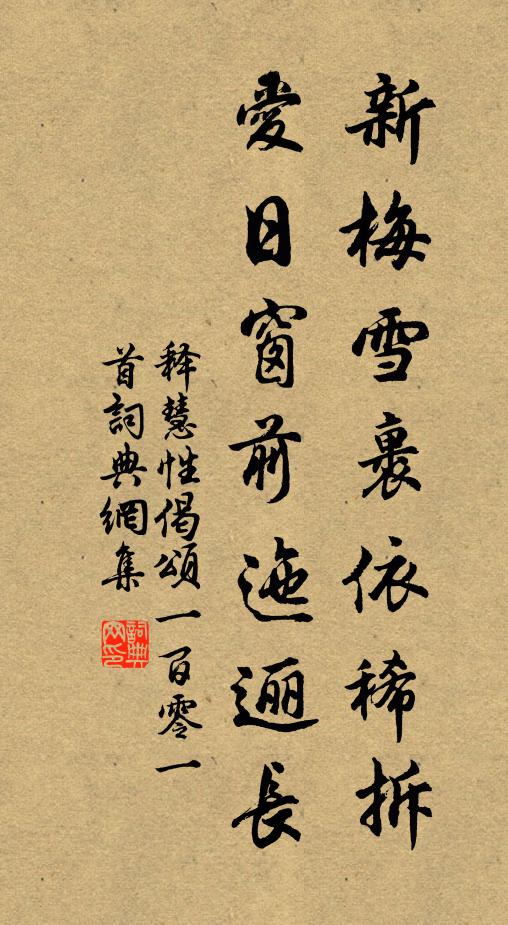 新梅雪裹依稀拆
愛日窗前迤逦長
释慧性偈頌一百零一
首詞典網集
詞典網印